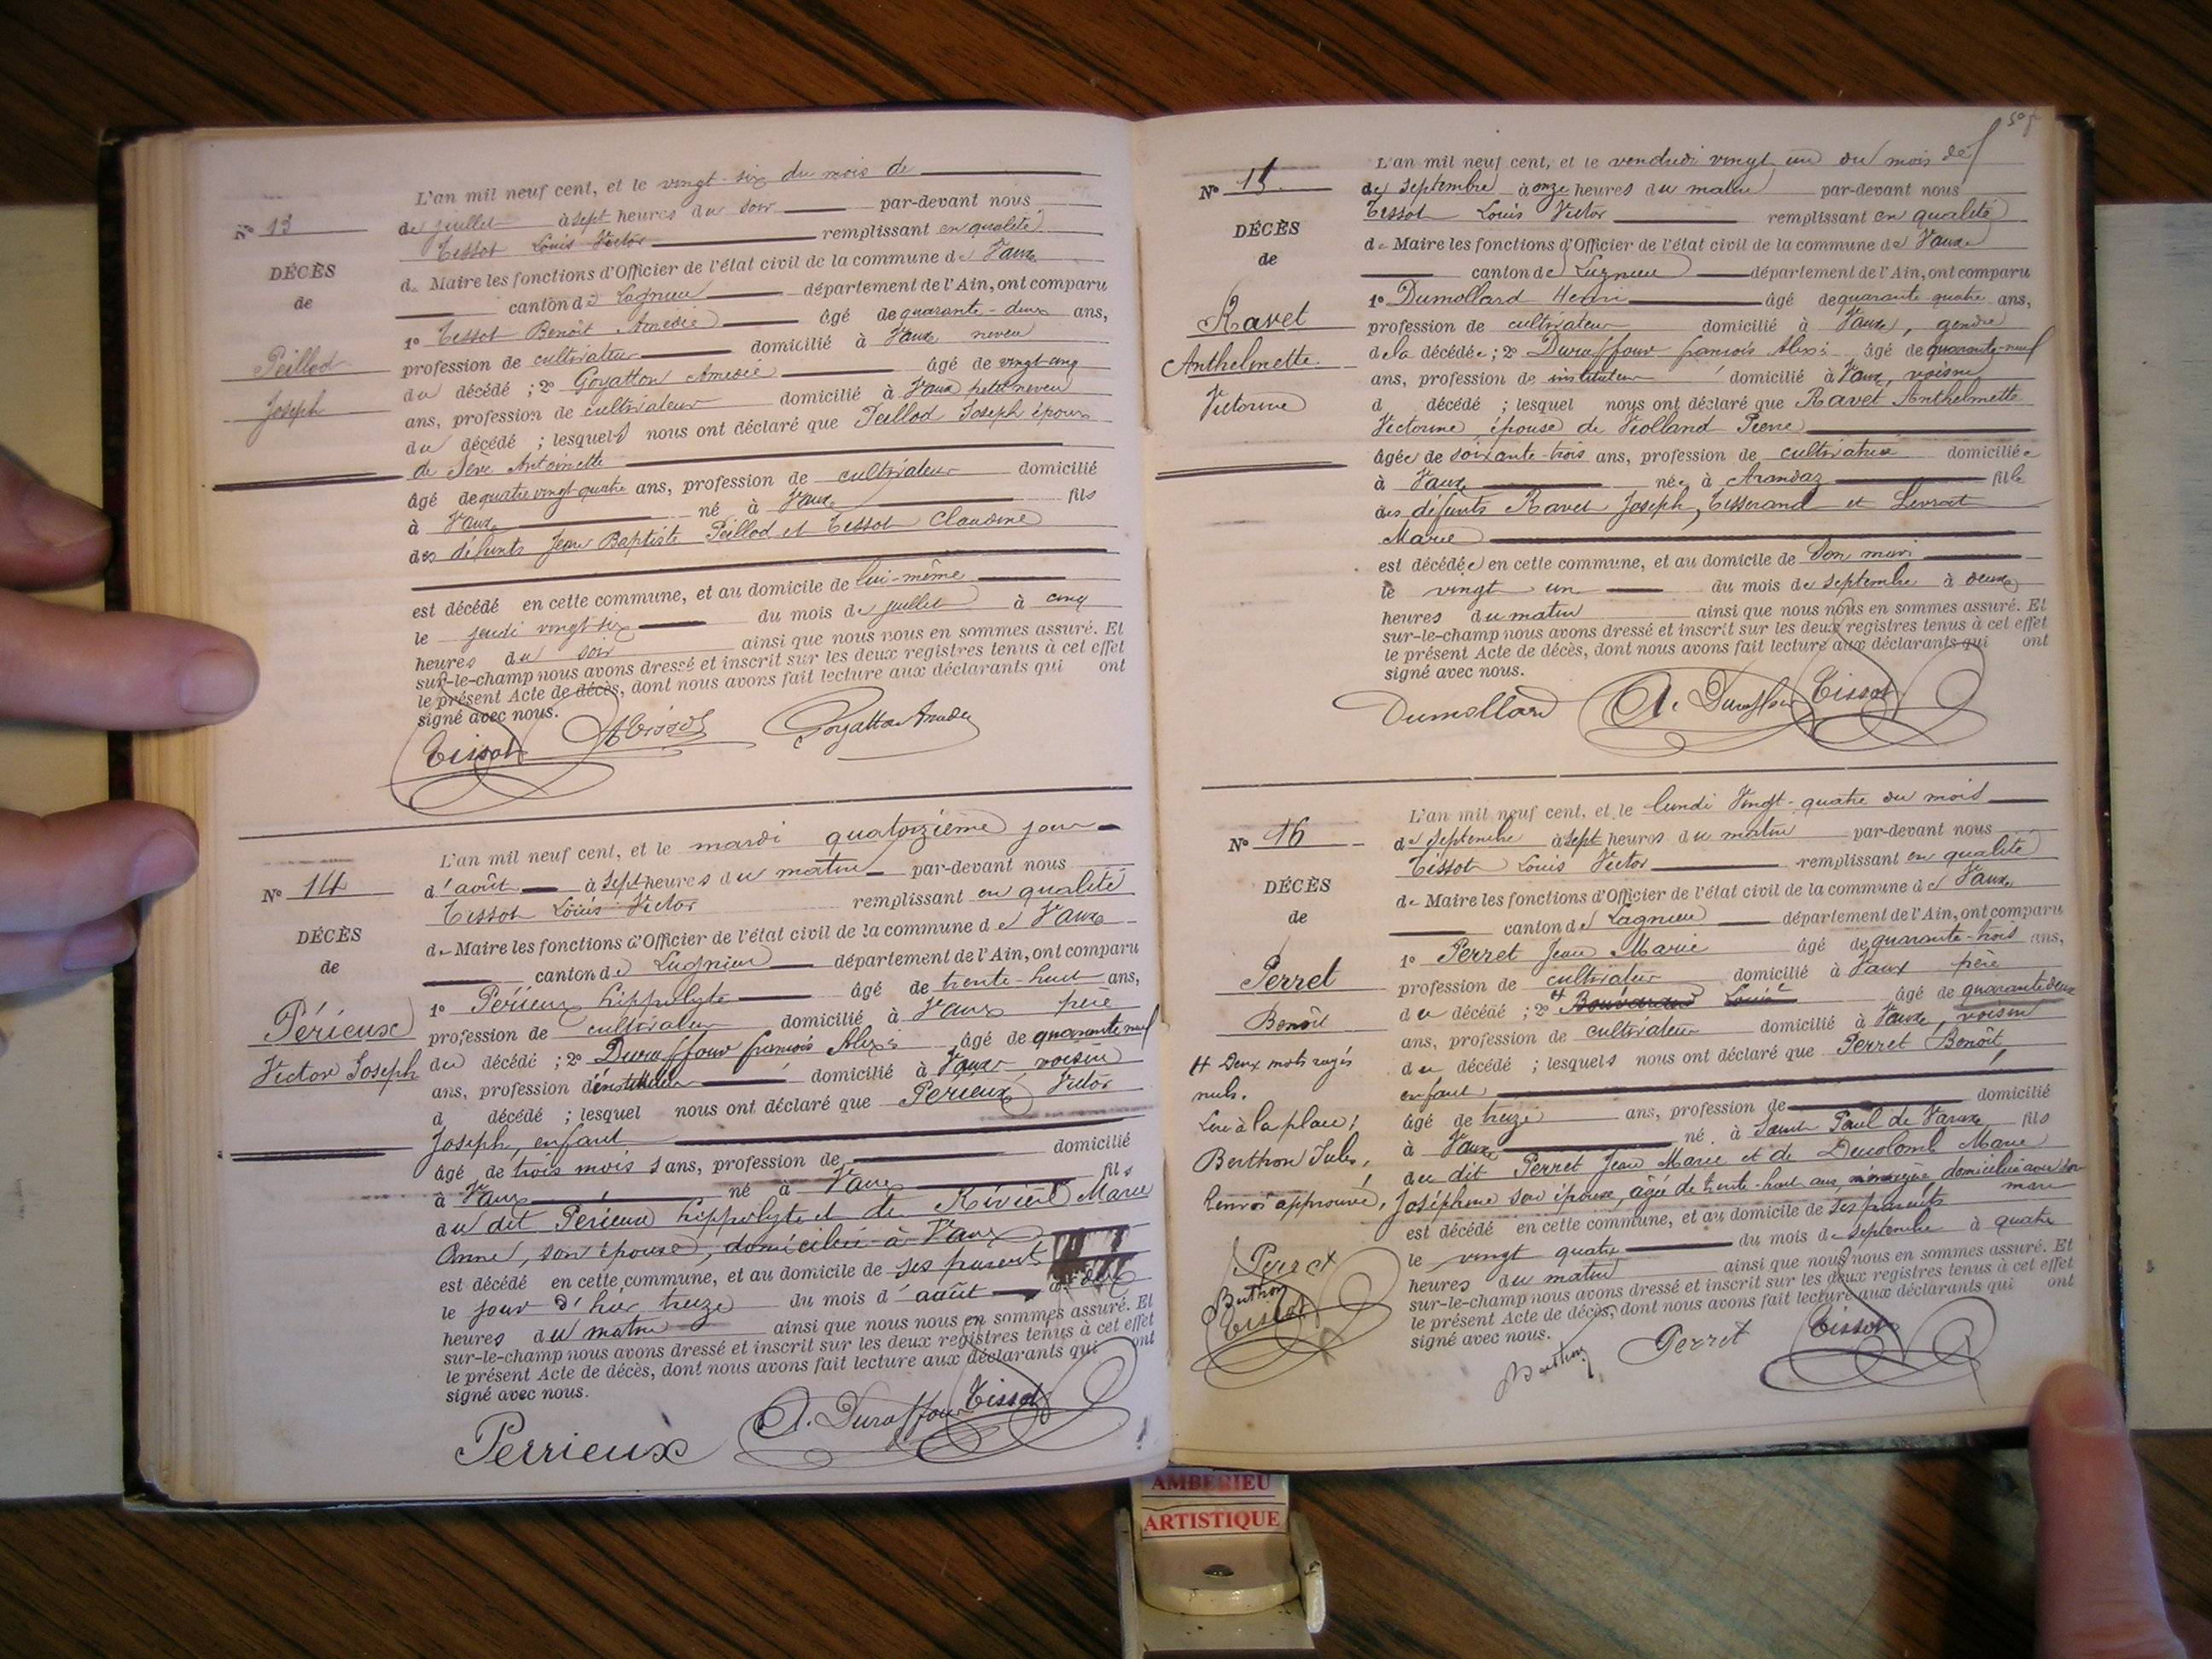 L'an mil neuf cent, et le vingt-six du mois de
No 13
de juillet à sept heures du soir par-devant nous
Tissot Louis Victor remplissant en qualité
DÉCÈS
de Maire les fonctions d'Officier de l'état civil de la commune de Vaux
de
canton de Lagnieu département de l'Ain, ont comparu
1o Tissot Benoît Amedée âgé de quarante-deux ans,
Peillod
profession de cultivateur domicilié à Vaux neveu
du décédé ; 2o Goyatton Amedée âgé de vingt-cinq
Joseph
ans, profession de cultivateur domicilié à Vaux petit neveu
du décédé ; lesquels nous ont déclaré que Peillod Joseph époux
de Sève Antoinette
âgé de quatre vingt-quatre ans, profession de cultivateur domicilié
à Vaux né à Vaux fils
des défunts Jean Baptiste Peillod et Tissot Claudine
est décédé en cette commune, et au domicile de lui-même
le jeudi vingt-six du mois de juillet à cinq
heures du soir ainsi que nous nous en sommes assuré. Et
sur-le-champ nous avons dressé et inscrit sur les deux registres tenus à cet effet
le présent Acte de décès, dont nous avons fait lecture aux déclarants qui ont
signé avec nous.
Tissot ATissot Goyatton Amedée
L'an mil neuf cent, et le mardi quatorzième jour
No 14
d'août à sept heures du matin par-devant nous
Tissot Louis Victor remplissant en qualité
DÉCÈS
de Maire les fonctions d'Officier de l'état civil de la commune de Vaux
de
canton de Lagnieu département de l'Ain, ont comparu
1o Périeux hippolyte âgé de trente-huit ans,
Périeux
profession de cultivateur domicilié à Vaux père
Victor Joseph
du décédé ; 2o Duraffour françois Alexis âgé de quarante neuf
ans, profession d'instituteur domicilié à Vaux voisin
d décédé ; lesquel nous ont déclaré que Périeux Victor
Joseph, enfant
âgé de trois mois ans, profession de domicilié
à Vaux né à Vaux fils
du dit Perieux hippolyte et de Rivière Marie
Anne, son épouse, domiciliée à Vaux
est décédé en cette commune, et au domicile de ses parents
le jour d'hier treize du mois d'août à deux
heures du matin ainsi que nous nous en sommes assuré. Et
sur-le-champ nous avons dressé et inscrit sur les deux registres tenus à cet effet
le présent Acte de décès, dont nous avons fait lecture aux déclarants qui ont
signé avec nous.
Perrieux A. Duraffour Tissot
L'an mil neuf cent, et le vendredi vingt un du mois de
No 15
de septembre à onze heures du matin par-devant nous
Tissot Louis Victor remplissant en qualité
DÉCÈS
de Maire les fonctions d'Officier de l'état civil de la commune de Vaux
de
canton de Lagnieu département de l'Ain, ont comparu
1o Dumollard Henri âgé de quarante-quatre ans,
Ravet
profession de cultivateur domicilié à Vaux, gendre
Anthelmette
de la décédée ; 2o Duraffour françois Alexis âgé de quarante-neuf
ans, profession de instituteur domicilié à Vaux, voisin
Victorine
d décédé ; lesquel nous ont déclaré que Ravet Anthelmette
Victorine épouse de Violland Pierre
âgée de soixante-trois ans, profession de cultivatrice domiciliée
à Vaux née à Arandaz fille
des défunts Ravet Joseph, Tisserand et Levrat
Marie
est décédée en cette commune, et au domicile de son mari
le vingt un du mois de septembre à deux
heures du matin ainsi que nous nous en sommes assuré. Et
sur-le-champ nous avons dressé et inscrit sur les deux registres tenus à cet effet
le présent Acte de décès, dont nous avons fait lecture aux déclarants qui ont
signé avec nous.
Dumollard A. Duraffour Tissot
L'an mil neuf cent, et le lundi Vingt-quatre du mois
No 16
de septembre à sept heures du matin par-devant nous
Tissot Louis Victor remplissant en qualité
DÉCÈS
de Maire les fonctions d'Officier de l'état civil de la commune de Vaux
de
canton de Lagnieu département de l'Ain, ont comparu
1o Perret Jean Marie âgé de quarante-trois ans,
Perret
profession de cultivateur domicilié à Vaux père
du décédé ; 2o # Bouvarand Louis âgé de quarante deux
Benoît
ans, profession de cultivateur domicilié à Vaux, voisin
du décédé ; lesquels nous ont déclaré que Perret Benoît,
# Deux mots rayés
nuls.
enfant
âgé de treize ans, profession de domicilié
Lire à la place :
à Vaux né à Saint Paul de Varax fils
Berthon Jules,
du dit Perret Jean Marie et de Ducolomb Marie
Renvoi approuvé,
Joséphine son épouse, âgée de trente-huit ans, ménagère, domiciliée avec son
mari
est décédé en cette commune, et au domicile de ses parents
le vingt quatre du mois de septembre à quatre
heures du matin ainsi que nous nous en sommes assuré. Et
sur-le-champ nous avons dressé et inscrit sur les deux registres tenus à cet effet
le présent Acte de décès, dont nous avons fait lecture aux déclarants qui ont
signé avec nous.
Perret
Berthon
Tissot
Berthon Perret Tissot
AMBERIEU
ARTISTIQUE